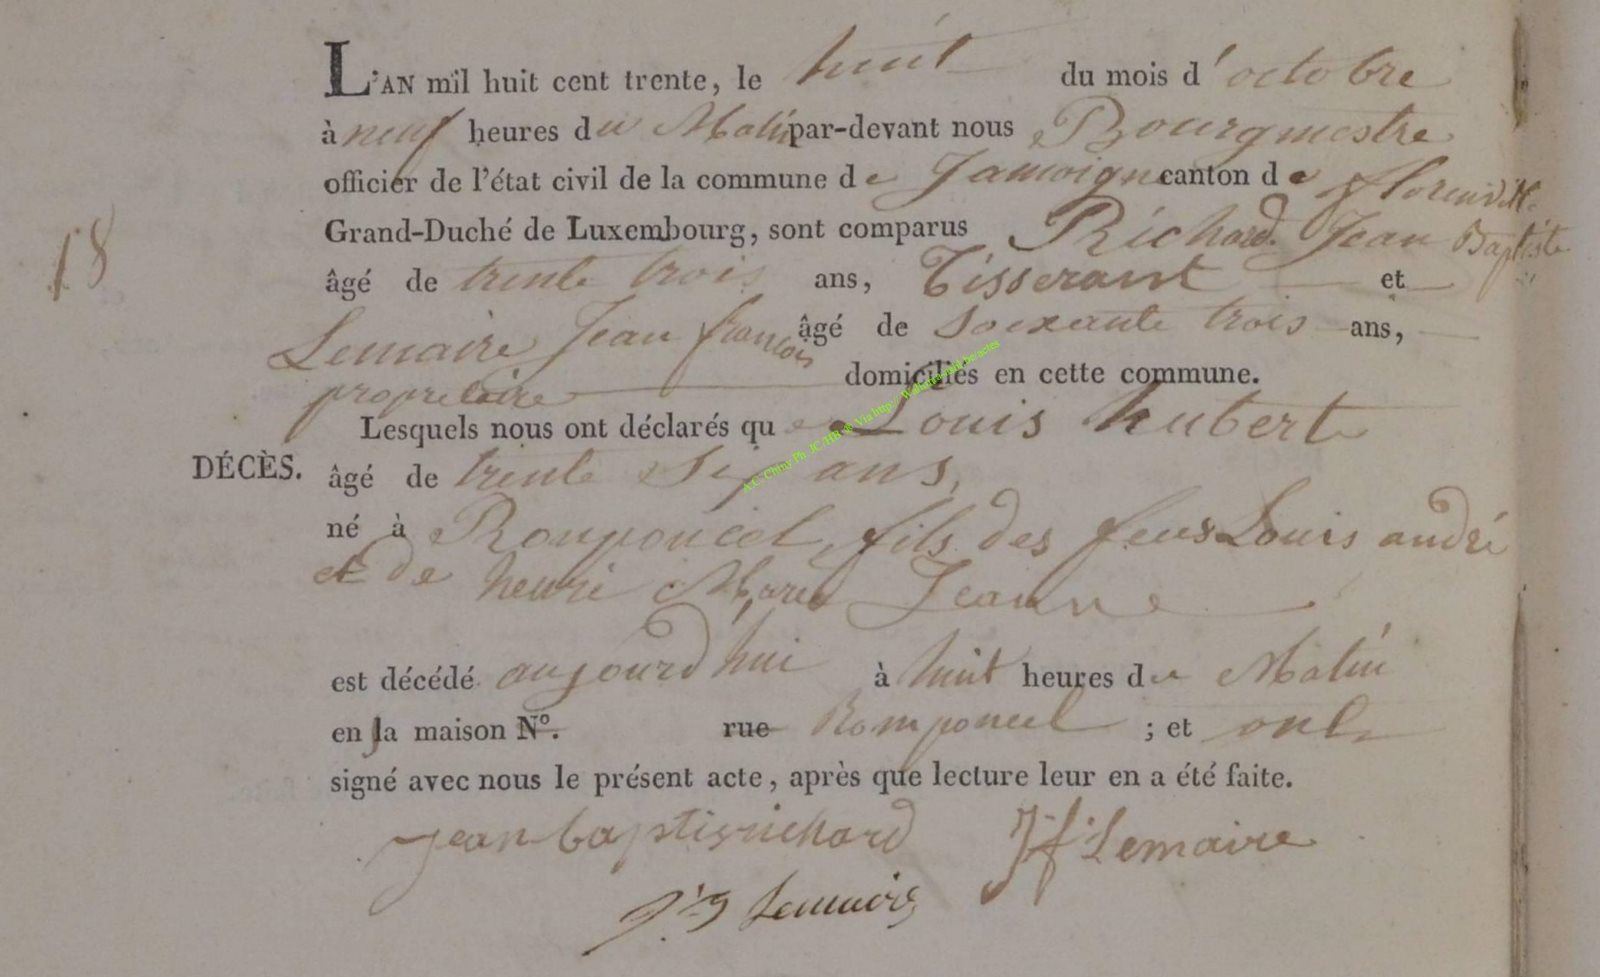 L'AN mil huit cent trente, le huit du mois d'octobre
à neuf heures du Matin par-devant nous Bourgmestre
officier de l'état civil de la commune de Jamoigne canton de florenville
18
Grand-Duché de Luxembourg, sont comparus Richard Jean Baptiste
âgé de trente trois ans, Tisserant et
Lemaire Jean françois âgé de soixante trois ans,
propretaire domiciliés en cette commune.
Lesquels nous ont déclarés que Louis hubert
DÉCÈS. âgé de trente ans,
né à fils des feus Louis andré
et de henri Marie Jeanne
est décédé aujourd'hui à huit heures du Matin
en la maison N°. rue Romponcel ; et ont
signé avec nous le présent acte, après que lecture leur en a été faite.
jean baptis richard Jf Lemaire
A.C. Chiny Ph JC/HR @ Via http://